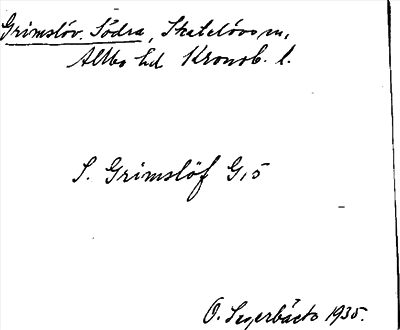 Grimslöv. Södra, Skatelövs sn,
Allbo hd Kronob. l.
S. Grimslöf G, 5
O. Segerbäck 1935.